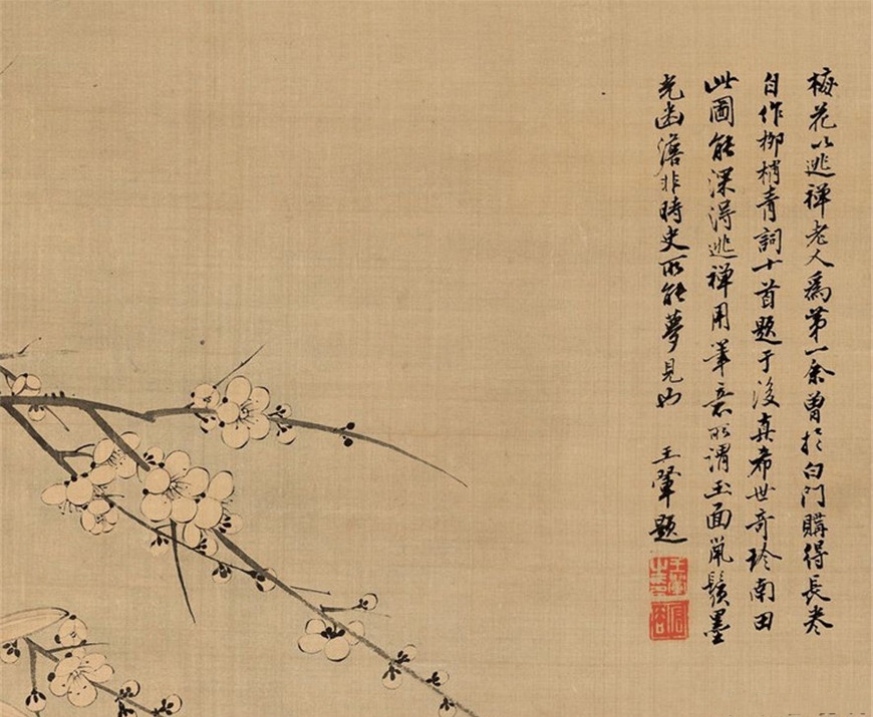 梅花以逃禪老人爲第一余曾於白門購得長卷
自作柳梢青詞十首題于後真希世奇珍南田
此圖能深得逃禪用筆意所謂玉面鼠鬚墨
光幽澹非時史所能夢見也 王翬題
王翬之印